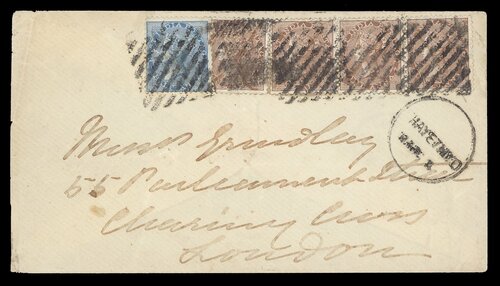 INDIA
Messrs Grindlay
55 Parliament Street
Charing Cross
London
THAYETMYO